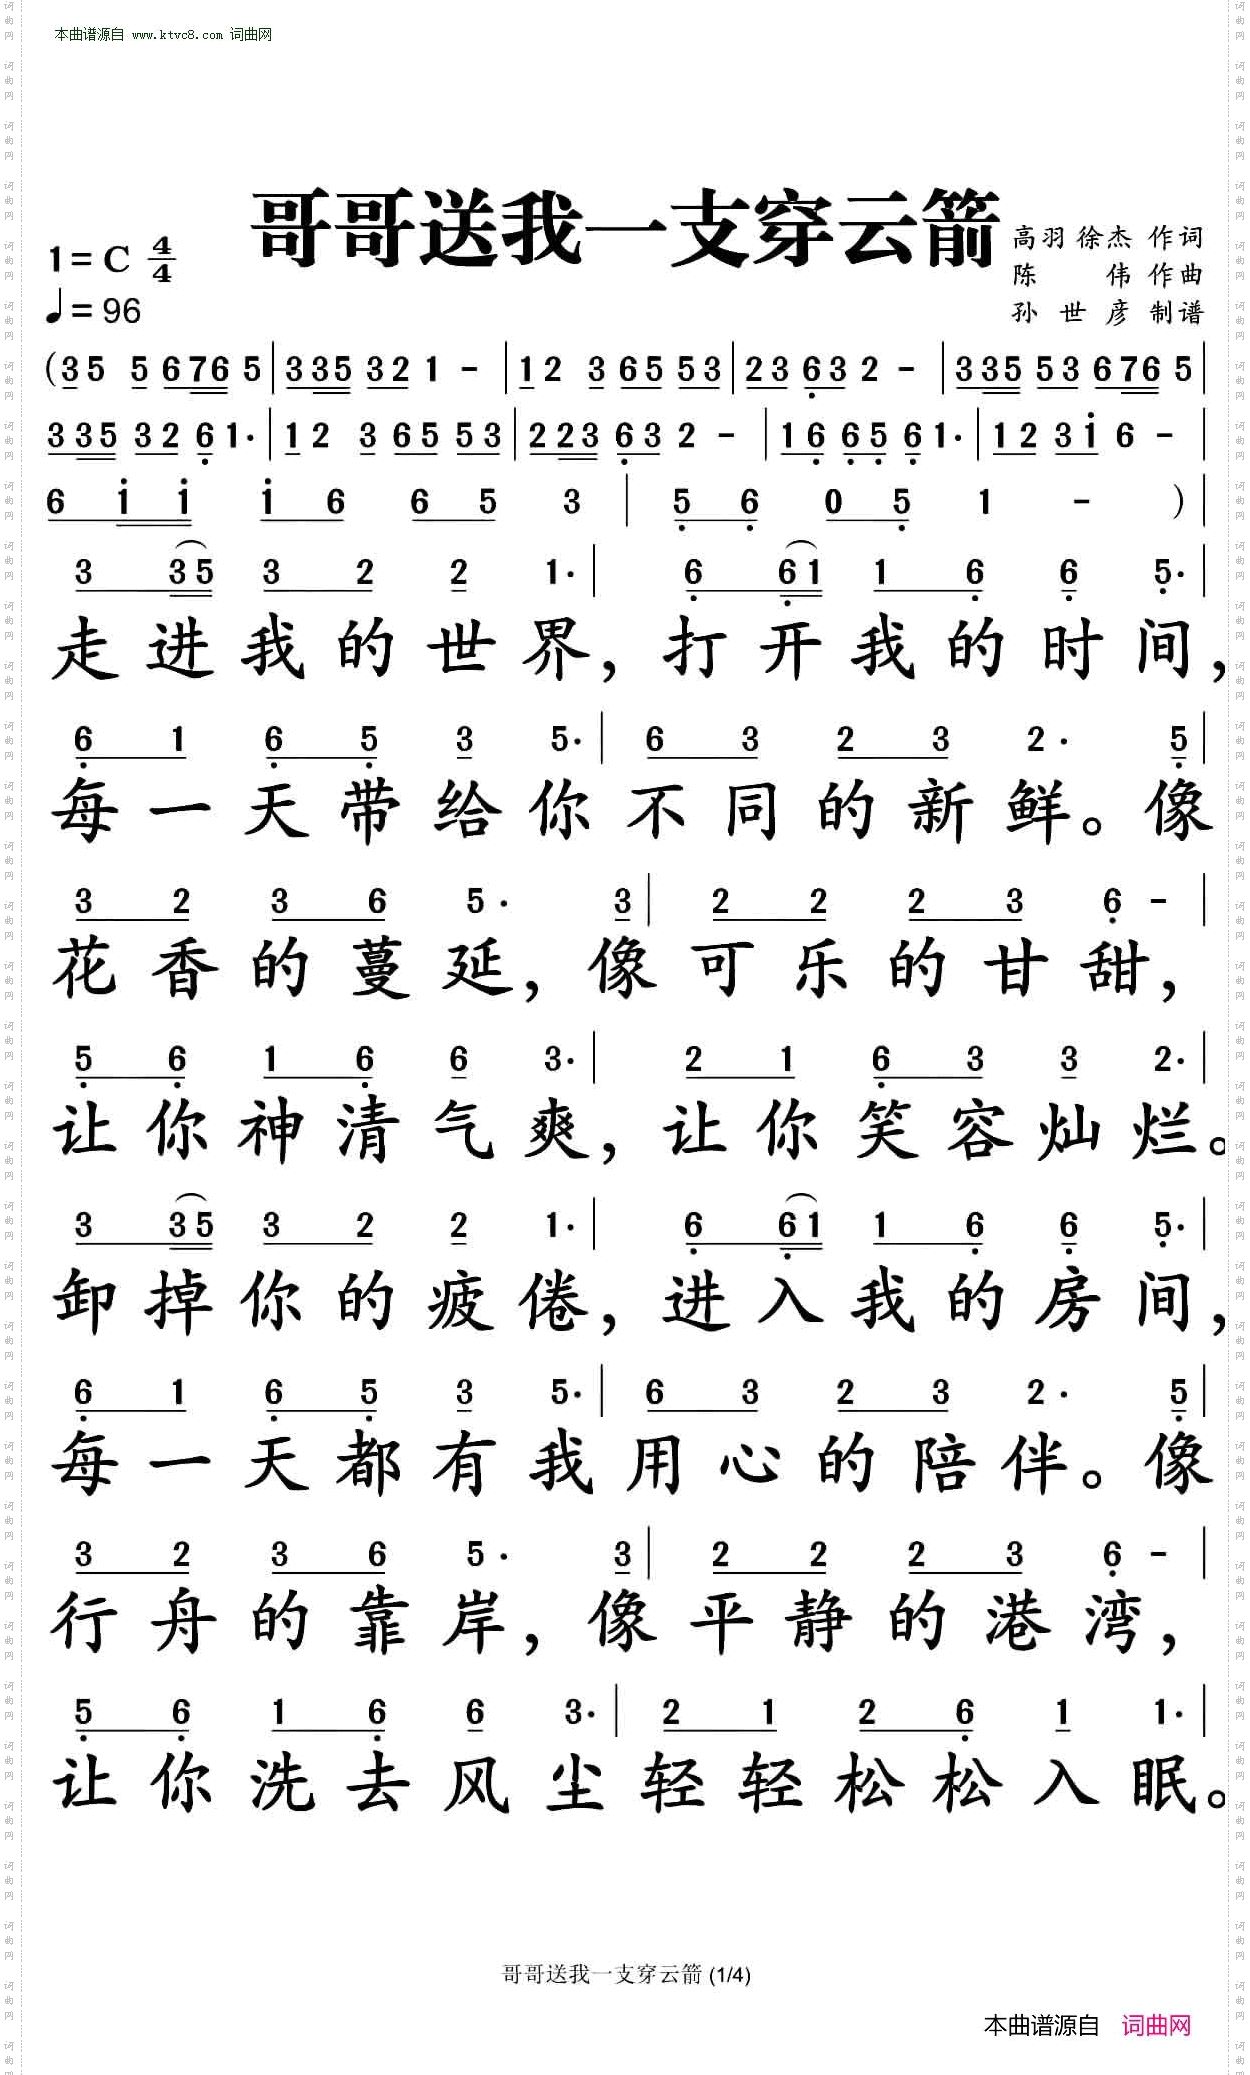 本曲谱源自 www.ktvc8.com 词曲网
哥哥送我一支穿云箭
高羽 徐杰 作词
1=C 4/4
陈 伟 作曲
♩=96
孙世彦 制谱
(3 5 5 6 7 6 5 | 3 3 5 3 2 1 - | 1 2 3 6 5 5 3 | 2 3 6̣ 3 2 - | 3 3 5 5 3 6 7 6 5 |
3 3 5 3 2 6̣ 1· | 1 2 3 6 5 5 3 | 2 2 3 6̣ 3 2 - | 1 6̣ 6̣ 5̣ 6̣ 1· | 1 2 3 i 6 - |
6 i i i 6 6 5 3 | 5̣ 6̣ 0 5̣ 1 - ) |
3 3 5 3 2 2 1· | 6̣ 6̣ 1 1 6̣ 6̣ 5̣· |
走进我的世界，打开我的时间，
6̣ 1 6̣ 5̣ 3 5· | 6 3 2 3 2· 5̣ |
每一天带给你不同的新鲜。像
3 2 3 6 5· 3 | 2 2 2 3 6̣ - |
花香的蔓延，像可乐的甘甜，
5̣ 6̣ 1 6̣ 6 3· | 2 1 6̣ 3 3 2· |
让你神清气爽，让你笑容灿烂。
3 3 5 3 2 2 1· | 6̣ 6̣ 1 1 6̣ 6̣ 5̣· |
卸掉你的疲倦，进入我的房间，
6̣ 1 6̣ 5̣ 3 5· | 6 3 2 3 2· 5̣ |
每一天都有我用心的陪伴。像
3 2 3 6 5· 3 | 2 2 2 3 6̣ - |
行舟的靠岸，像平静的港湾，
5̣ 6̣ 1 6̣ 6 3· | 2 1 2 6̣ 1 1· |
让你洗去风尘轻轻松松入眠。
哥哥送我一支穿云箭 (1/4)
本曲谱源自 词曲网